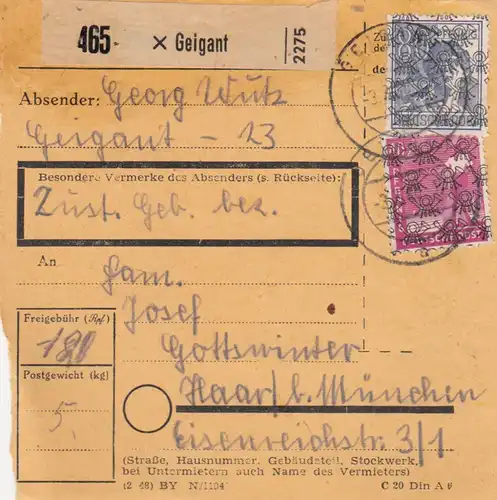 465 × Geigant 2275
Absender: Georg Wutz
Geigant - 23
Besondere Vermerke des Absenders (s. Rückseite):
Zust. Geb. bez.
An Fam.
Josef
Gottswinter
Haar/b. München
Eisenreichstr. 3/1
Freigebühr (Rpf.)
180
Postgewicht (kg)
5.
(Straße, Hausnummer, Gebäudeteil, Stockwerk,
bei Untermietern auch Name des Vermieters)
(2 48) BY N/1104 C 20 Din A 6